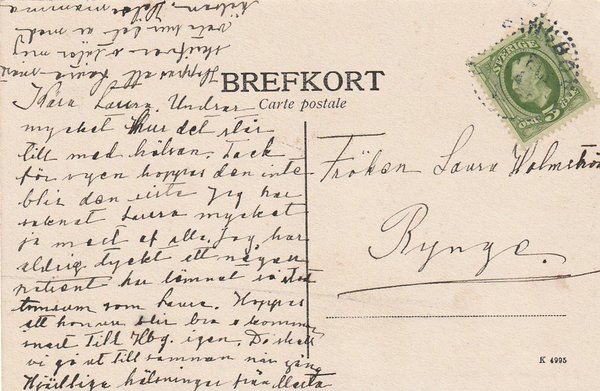 BREFKORT
Carte postale
SVERIGE
5 ÖRE 5
Kära Laura. Undrar
mycket hur det står
till med hälsan. Tack
för vyen hoppas den inte
blir den sista Jag har
saknat Laura mycket
ja mest af alla. Jag har
aldrig tyckt att någon
patient har lämnat så stor
tomrum som Laura. Hoppas
att hon nu blir bra o kommer
snart till Hbg. igen. Då skall
vi gå ut till samman någon gång
Hjärtliga hälsningar från Marta
Hoppas att Laura
skrifver
Fröken Laura Holmströ
Rynge.
K 4995